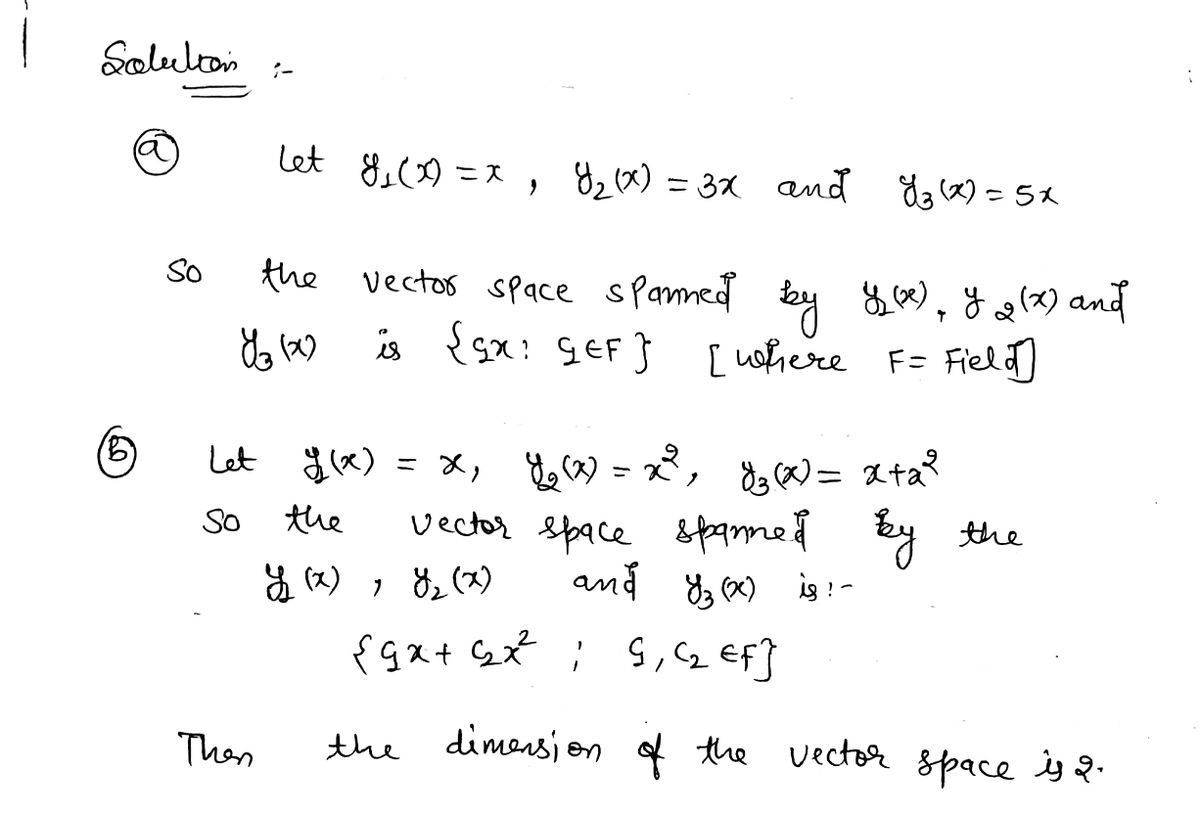 Solution :-
(a) Let y₁(x) = x , y₂(x) = 3x and y₃(x) = 5x
So the vector space spanned by y₁(x), y₂(x) and
y₃(x) is {c₁x : c₁ ∈ F } [where F = Field]
(b) Let y₁(x) = x, y₂(x) = x², y₃(x) = x+x²
So the vector space spanned by the
y₁(x) , y₂(x) and y₃(x) is :-
{c₁x + c₂x² ; c₁, c₂ ∈ F}
Then the dimension of the vector space is 2.